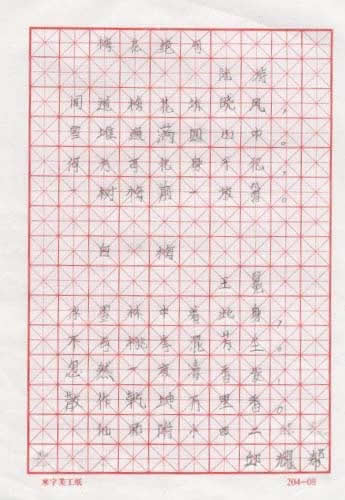 梅花绝句
陆游
闻道梅花坼晓风，
雪堆遍满四山中。
何方可化身千亿，
一树梅前一放翁。
白梅
王冕
冰雪林中著此身，
不与桃李混芳尘。
忽然一夜清香发，
散作乾坤万里香。
附小四二
邱耀邦
米字美工纸 204-08